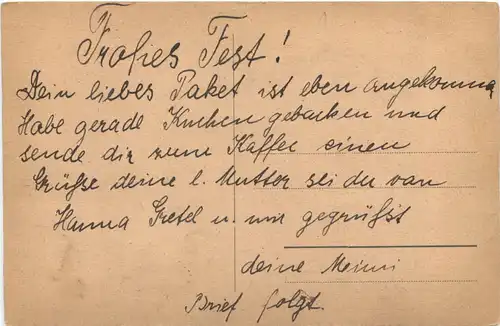 Frohes Fest!
Dein liebes Paket ist eben angekomme
Habe gerade Kuchen gebacken und
sende dir zum Kaffee einen
Grüsse deine l. Mutter sei du von
Hanna Gretel u. mir gegrüsst
deine Meini
Brief folgt.